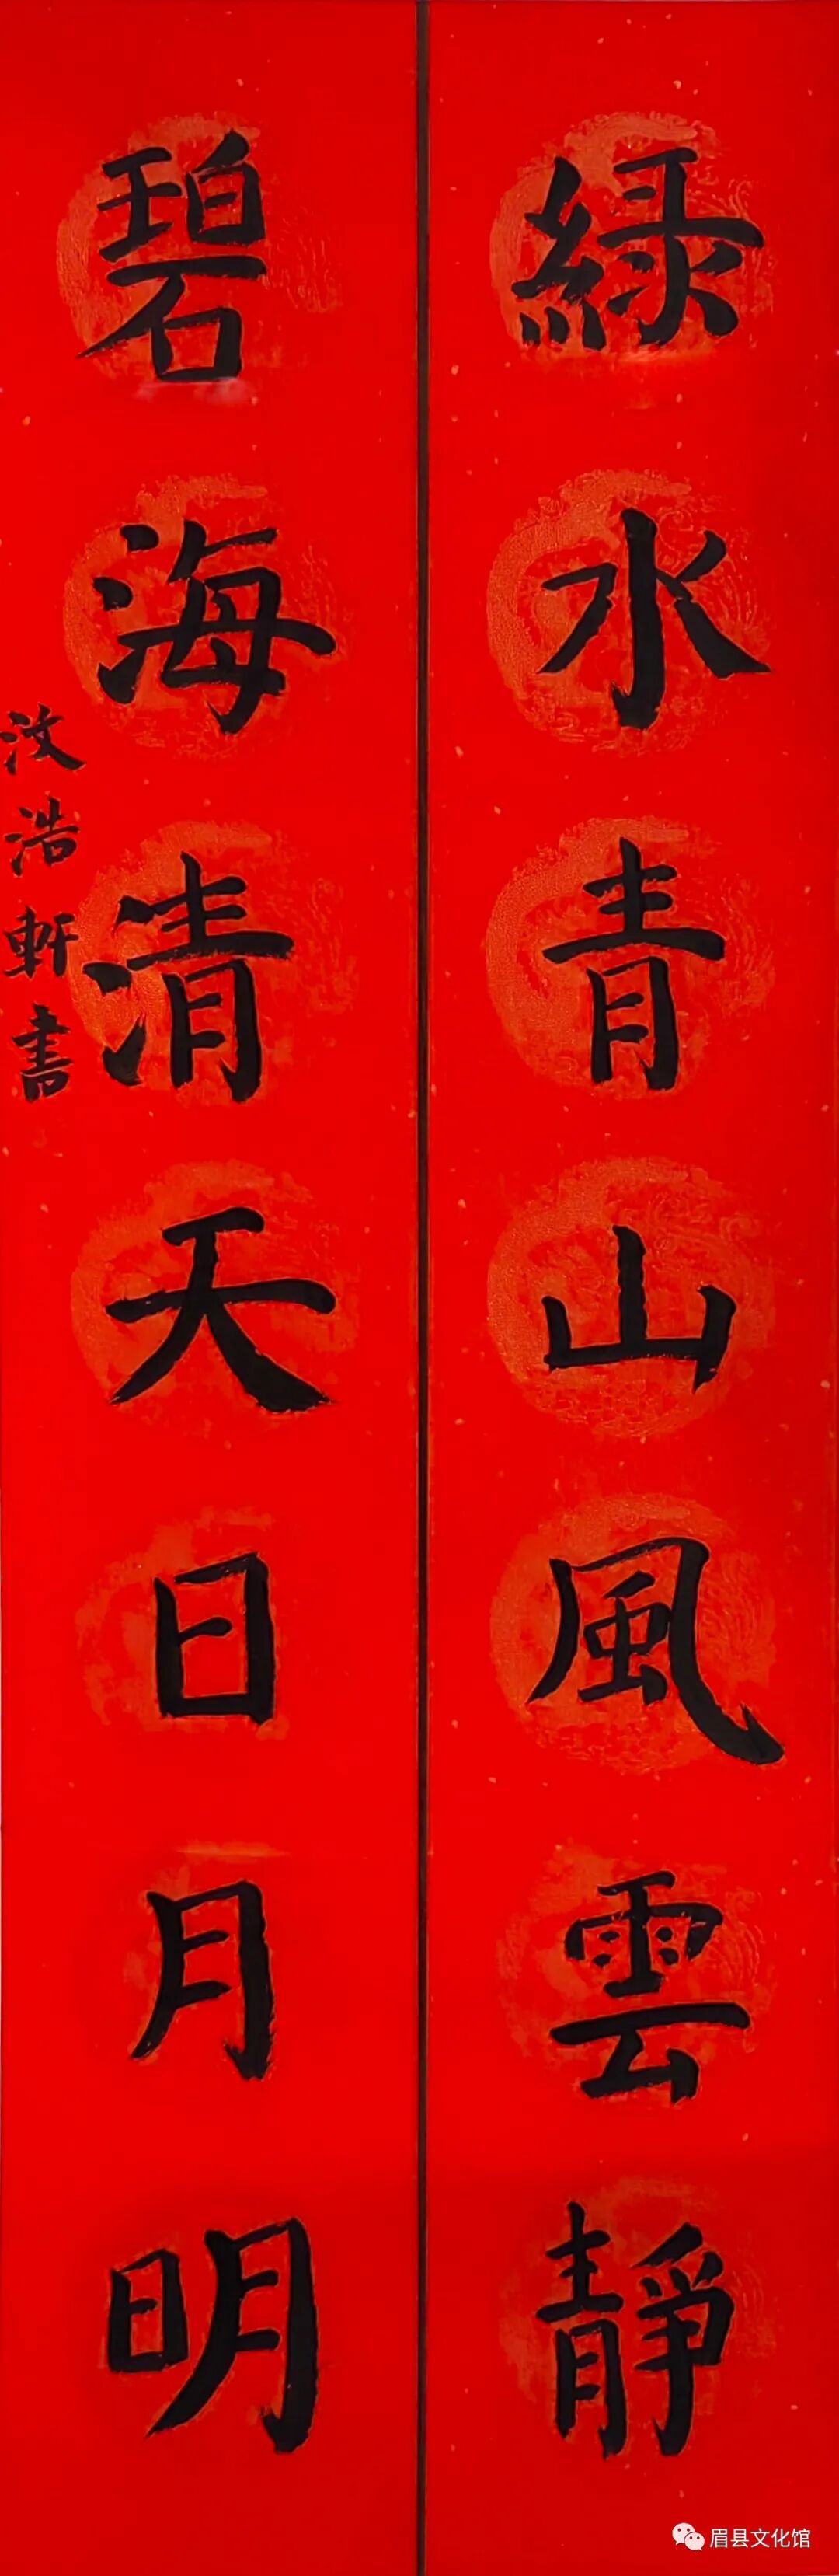 綠水青山風雲靜
碧海清天日月明
汶浩軒書
眉县文化馆